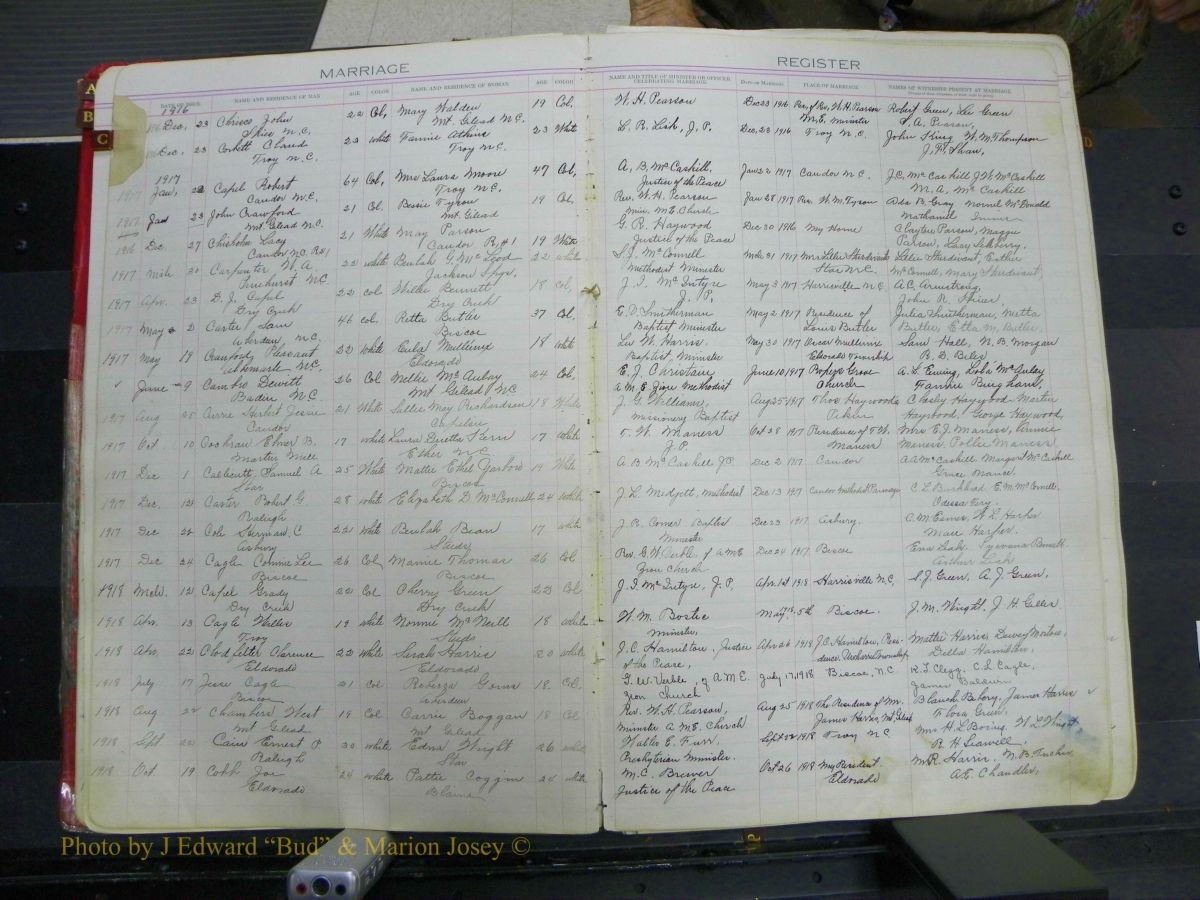 MARRIAGE
REGISTER
DATE OF ISSUE. NAME AND RESIDENCE OF MAN AGE COLOR NAME AND RESIDENCE OF WOMAN AGE COLOR NAME AND TITLE OF MINISTER OR OFFICER CELEBRATING MARRIAGE. DATE OF MARRIAGE PLACE OF MARRIAGE NAMES OF WITNESSES PRESENT AT MARRIAGE.
1916
Dec. 23 Chrisco John 22 Col, Mary Walden 19 Col. W. H. Pearson Dec 23 1916 Res, of Rev, W. H. Pearson Robert Green, Lee Green
N.C. Mt. Gilead N.C. M.E. Minister S. A. Pearson,
Dec. 23 Corbett Claud 23 white Fannie Atkins 23 White L. R. Lisk, J. P. Dec, 23 1916 Troy N.C. John King W. M. Thompson
Troy N.C. Troy N.C. J. P. Shaw,
1917
Jan, 22 Capel Robert 64 Col, Mrs Laura Moore 47 Col, A, B, McCaskill, Jan 22 1917 Candor N.C. J.C, McCaskill J. W. McCaskill
Candor N.C, Troy N.C. Justice of the Peace M. A, McCaskill
1917 Jan 23 John Crawford 21 Col. Bessie Tyson 19 Col, Rev. W. H. Pearson Jan 28 1917 Res, W. M. Tyson Ada B. Gray
Mt. Gilead N.C. Mt. Gilead Min. M.E. Church Nathaniel
1916 Dec. 27 Chisholm Lacy 21 White May Parson 19 White G. R. Haywood Dec 30 1916 My Home Claytee Parson, Maggie
Candor N.C. R#1 Candor R#1 Justice of the Peace Parson, Lacy
1917 Mch 20 Carpenter W. A. 22 white Beulah G. McLeod 22 white S. J. McConnell Mch 31 1917 Mrs Lelia Sturdivant Lelia Sturdivant, Esther
Pinehurst N.C. Jackson Spgs. Methodist Minister Star N.C. McConnell, Mary Sturdivant,
1917 Apr. 23 D. J. Capel 22 col Willie Bennett 18 col, J. I. McIntyre May 3 1917 Harrisville N.C. A.C. Armstrong,
Dry Creek Dry Creek J. P. John R.
1917 May 2 Carter Sam 46 col, Retta Butler 37 Col, E. D. Smitherman May 2 1917 Residence of Julia Smitherman, Metta
Aberdeen N.C. Biscoe Baptist Minister Louis Butler Butler, Etta M. Butler.
1917 May 19 Crawford Pleasant 22 white Culia Mullinix 18 white W. Harris. May 30 1917 Oscar Mullinix Sam Hall, N. B. Morgan
Albemarle N.C. Eldorado Baptist, Minister Eldorado Township B. D. Biles,
June 9 Cambro Dewitt 26 Col Nellie McAulay 24 Col, E. J. Christian June 10 1917 Grove A. L. Ewing, McAuley
Badin N.C. Mt Gilead N.C A M.E. Zion Methodist Church Fannie Bingham,
1917 Aug 25 Currie Herbert Jessie 21 White Lillie May Richardson 18 White J. G. Williams, Aug 25 1917 Thos Haywoods Clasby Haywood, Martin
Candor Capelsie Missionary Baptist Pekin Haywood, George Haywood,
1917 Oct 10 Cochran Elmer B. 17 white Laura Kern 17 white T. W. Maness Oct 28 1917 Residence of T.W. Mrs E. J. Maness,
Martins Mill Ether N.C J. P. Maness Maness, Pollie Maness
1917 Dec 1 Callicutt Samuel A 25 White Mattie Ethel Yarboro 19 White A. B. McCaskill J.P. Dec 2 1917 Candor A.A. McCaskill, Margaret McCaskill
Star Biscoe Grace Nance
1917 Dec, 12 Carter Robert G. 28 white Elizabeth D McConnell 24 white J. L. Midgett, Methodist Dec 13 1917 Candor Methodist Parsonage C L Burkhead E. M. McConnell,
Raleigh Odessa Fry.
1917 Dec 22 Cole Sherman, C. 22 white Beulah Bean 17 white J. R. Comer Baptist Dec 23 1917 Asbury. C. M. W. L. Harper
Asbury Steeds Minister Harper.
1917 Dec 24 Cagle Connie Lee 26 Col Mamie Thomas 26 Col Rev. G. W. Verble, of A M E Dec 24 1917. Biscoe Leak,
Biscoe Biscoe Zion Church Arthur Leak
1918 Mch. 12 Capel Grady 22 Col Cherry Green 22 Col J. I. McIntyre, J. P, Apr. 1st 1918 Harrisville N.C, S. J. Green, A. J. Green,
Dry Creek Dry Creek
1918 Apr. 13 Cagle Walter 19 white Nonnie McNeill 18 white W. M. Bostic May 5th Biscoe. J. M. Wright, J. H.
Troy Steeds Minister,
1918 Apr, 22 Clodfelter Clarence 22 white Sarah Harris 20 white J. C. Hamilton, Justice Apr 26 1918 J. C. Hamilton, Resi- Mattie Harris, Dewey Morton,
Eldorado Eldorado of the Peace, dence, Uwharrie Township Della Hamilton,
1918 July 17 Jesse Cagle 21 Col Goins 18. Col. G. W. Verble, of A.M.E. July 17, 1918 Biscoe, N.C. R. T. Clegg, C. L Cagle,
Biscoe Aberdeen Zion Church James Baldwin
1918 Aug 22 Chambers West 19 Col Carrie Boggan 18 Col Rev. W. H. Pearson, Aug 25 1918 The Residence of Mr. Blanch James Harris
Mt Gilead Mt Gilead Minister A M E. Church James Harris, Mt. Gilead Flora Green.
1918 Sept. 22 Cain Ernest P 30 white Edna Wright 26 white Walter E. Furr, Sept 22 1918 Troy N C Mrs H L W L Wright
Raleigh Star Presbyterian Minister. R. H. Leawell,
1918 Oct 19 Cobb Joe 24 white Pattie Coggin 24 white M. C. Brewer Oct 26 1918 My Resident M. R. Harris, N. B. Tucker
Eldorado Blaine Justice of the Peace Eldorado A. E. Chandler,
A
B
C
Photo by J Edward “Bud” & Marion Josey ©